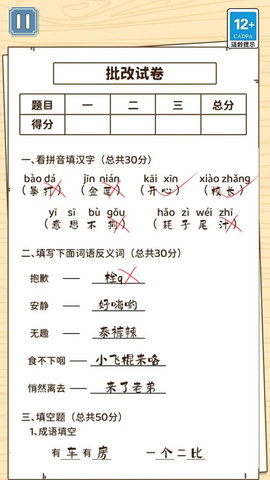 12+
CADPA
适龄提示
批改试卷
题目 一 二 三 总分
得分
一、看拼音填汉字（总共30分）
bào dá jīn nián kāi xīn xiào zhǎng
（暴打）（金莲）（开心）（校长）
yì sī bù gǒu hǎo zì wéi zhī
（意思不狗）（耗子尾汁）
二、填写下面词语反义词（总共30分）
抱歉 —— 栓q
安静 —— 好嗨哟
无趣 —— 泰裤辣
食不下咽 —— 小飞棍来咯
悄然离去 —— 来了老弟
三、填空题（总共50分）
1、成语填空
有车有房 一个二比